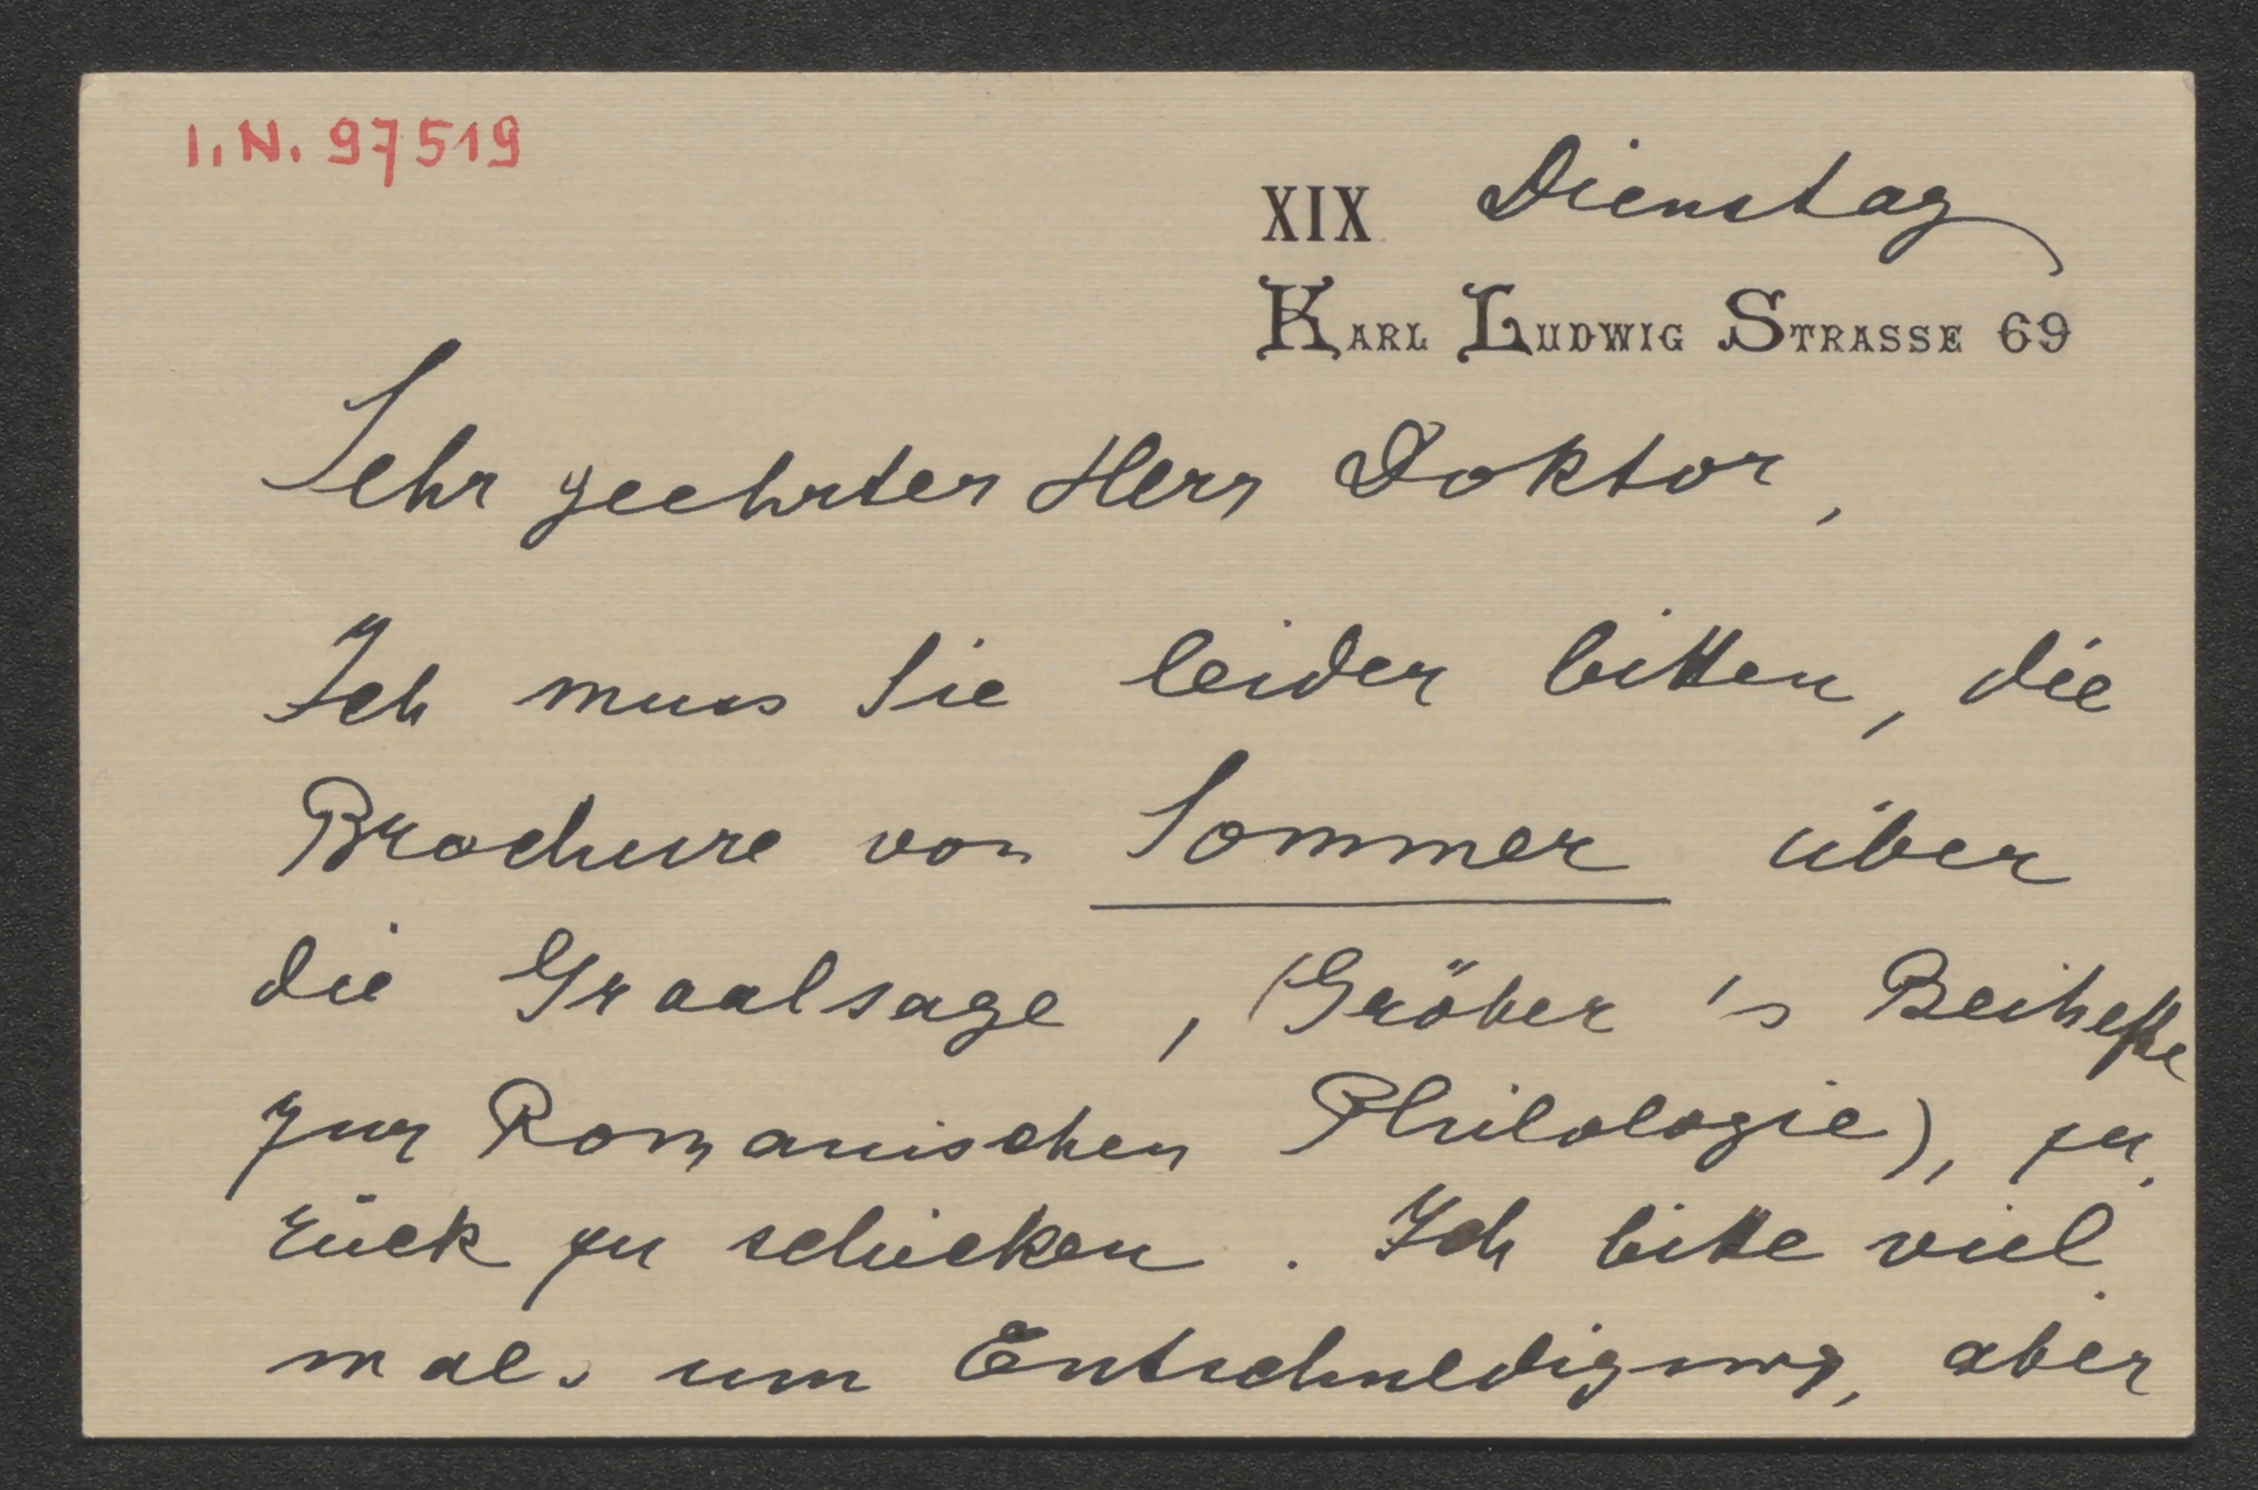 I.N. 97519
XIX Dienstag
KARL LUDWIG STRASSE 69
Sehr geehrter Herr Doktor,
Ich muss Sie leider bitten, die
Brochure von Sommer über
die Graalsage, (Gröber's Beihefte
zur Romanischen Philologie), zu-
rück zu schicken. Ich bitte viel-
mals um Entschuldigung, aber